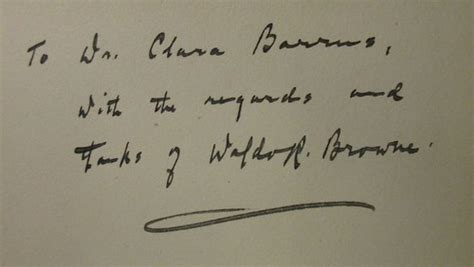 To Dr. Clara Barrus,
With the regards and
Tanks of Waldo R. Browne.